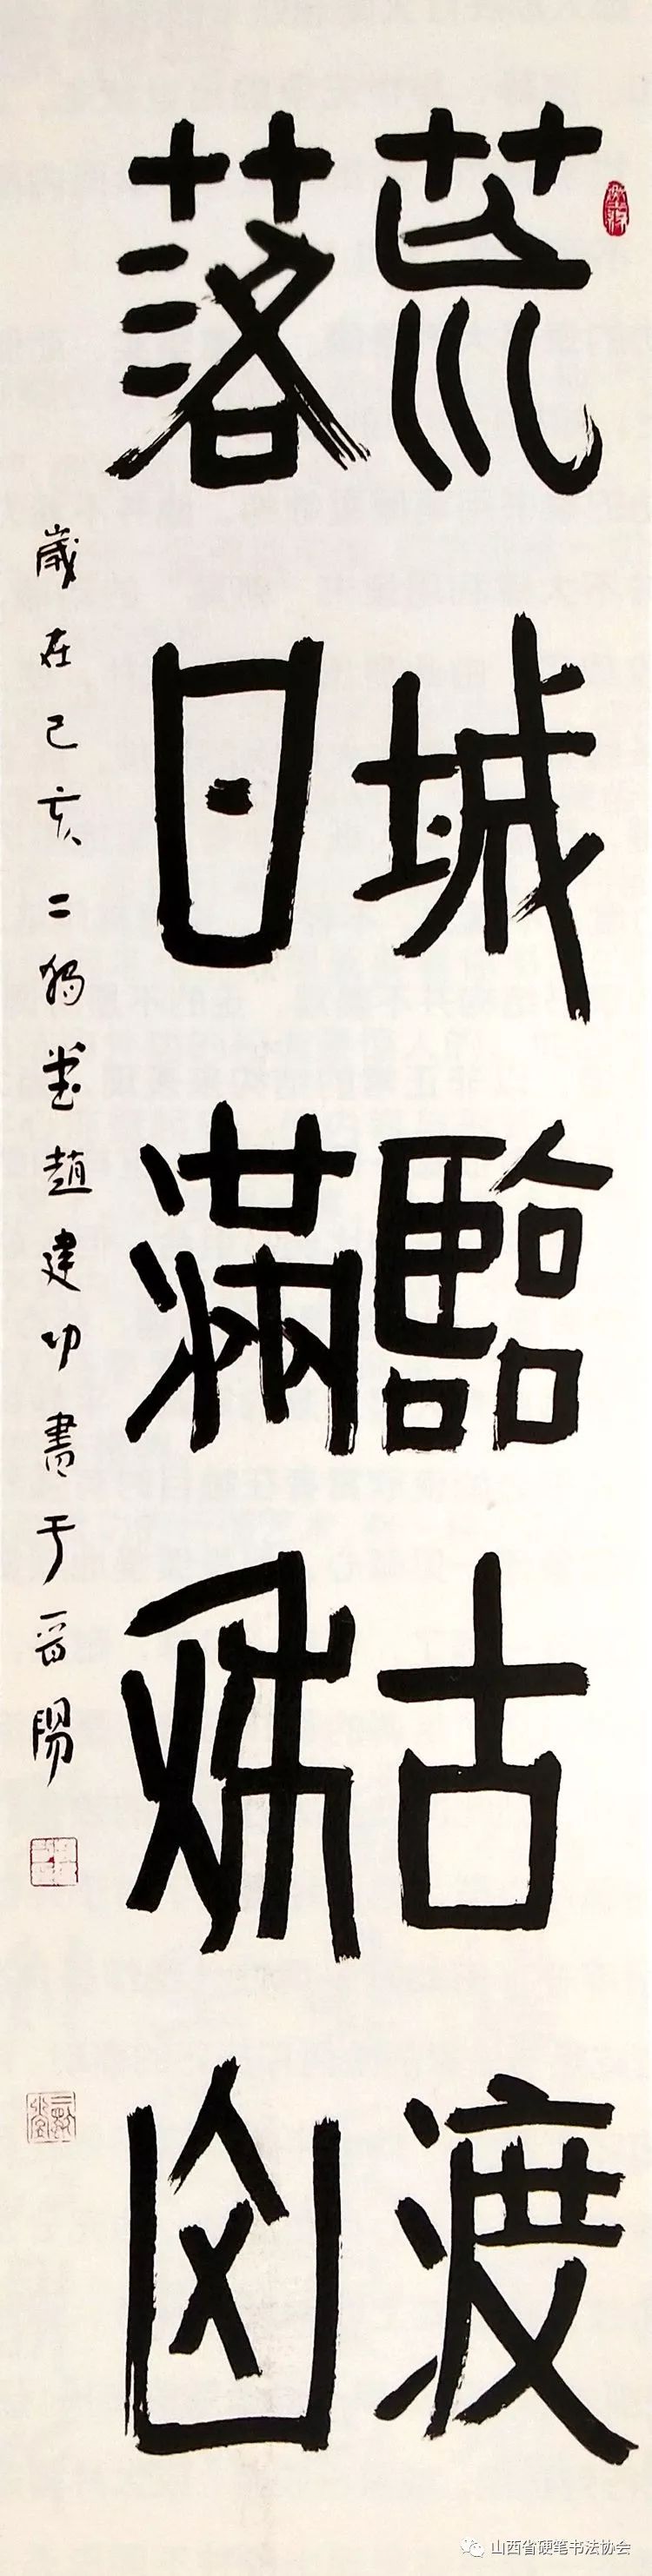 荒城臨古渡
落日滿秋山
歲在己亥二獨堂趙建功書于晉陽
山西省硬笔书法协会